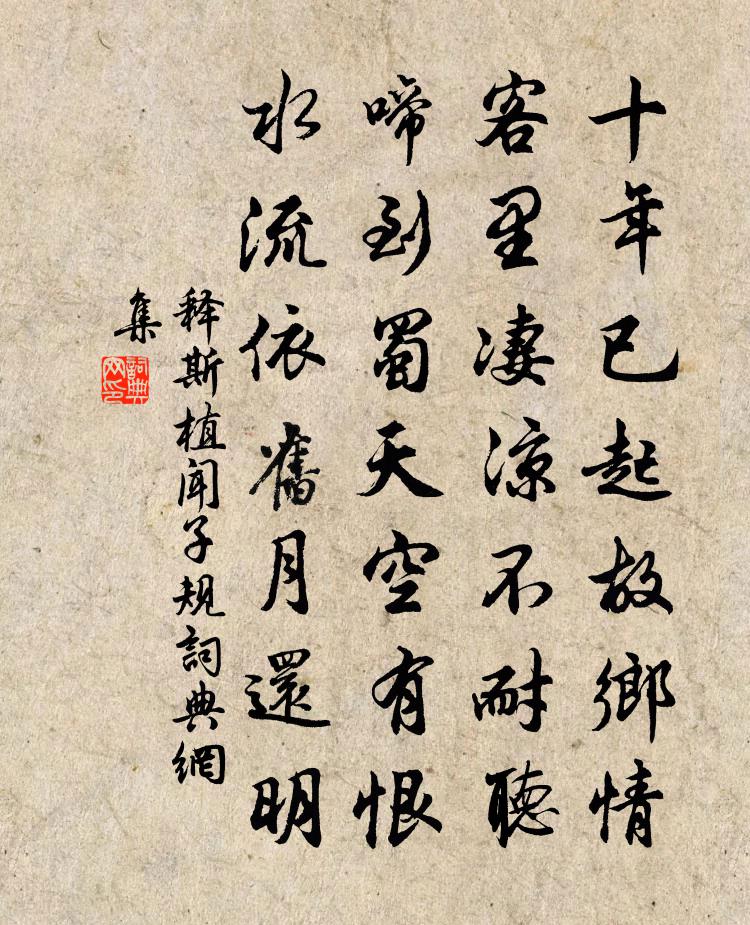 十年已起故鄉情
客里凄涼不耐聽
啼到蜀天空有恨
水流依舊月還明
释斯植闻子規詞典網
集
詞典
网印